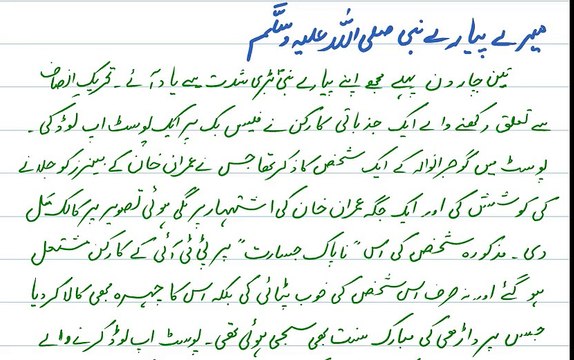 میرے پیارے نبی صلی اللہ علیہ وسلم
تین چار دن پہلے مجھے اپنے پیارے نبیؐ بڑی شدت سے یاد آئے۔ تحریک انصاف
سے تعلق رکھنے والے ایک جذباتی کارکن نے فیس بک پر ایک پوسٹ اپ لوڈ کی۔
پوسٹ میں گوجرانوالہ کے ایک شخص کا ذکر تھا جس نے عمران خان کے بینرز کو جلانے
کی کوشش کی اور ایک جگہ عمران خان کی اشتہار پر لگی ہوئی تصویر پر کالک مَل
دی۔ مذکورہ شخص کی اس "ناپاک جسارت" پر پی ٹی آئی کے کارکن مشتعل
ہو گئے اور نہ صرف اس شخص کی خوب پٹائی کی بلکہ اس کا چہرہ بھی کالا کر دیا
جس پر داڑھی کی مبارک سنت بھی سجی ہوئی تھی۔ پوسٹ اپ لوڈ کرنے والے